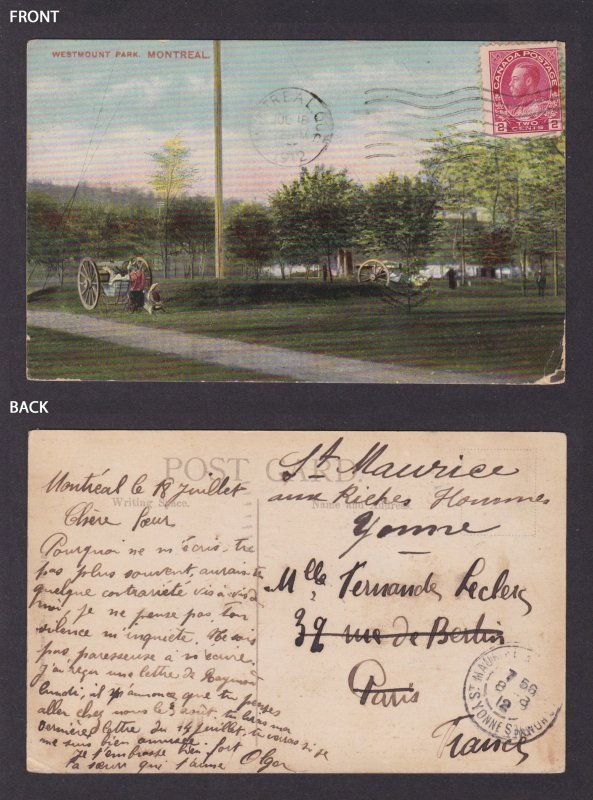 FRONT
WESTMOUNT PARK. MONTREAL.
CANADA POSTAGE
2 2
TWO CENTS
1912
BACK
POST CARD
Writing Space.
Name and Address.
Montréal le 18 Juillet
Chère Sœur
Pourquoi ne m'écris-tu
pas plus souvent, aurais-tu
quelque contrariété vis à vis de
moi, je ne pense pas ton
silence m'inquiète. Ne sois
pas paresseuse à m'écrire.
J'ai reçu une lettre de Raymond
lundi, il m'annonce que tu penses
aller chez nous le 3 août, tu liras ma
dernière lettre du 14 Juillet, tu verras si je
me suis bien amusée.
Je t'embrasse bien fort
ta sœur qui t'aime Olga
St Maurice
aux Riches Hommes
Yonne
Mlle Fernande Leclerc
37 rue de Berlin
Paris
France